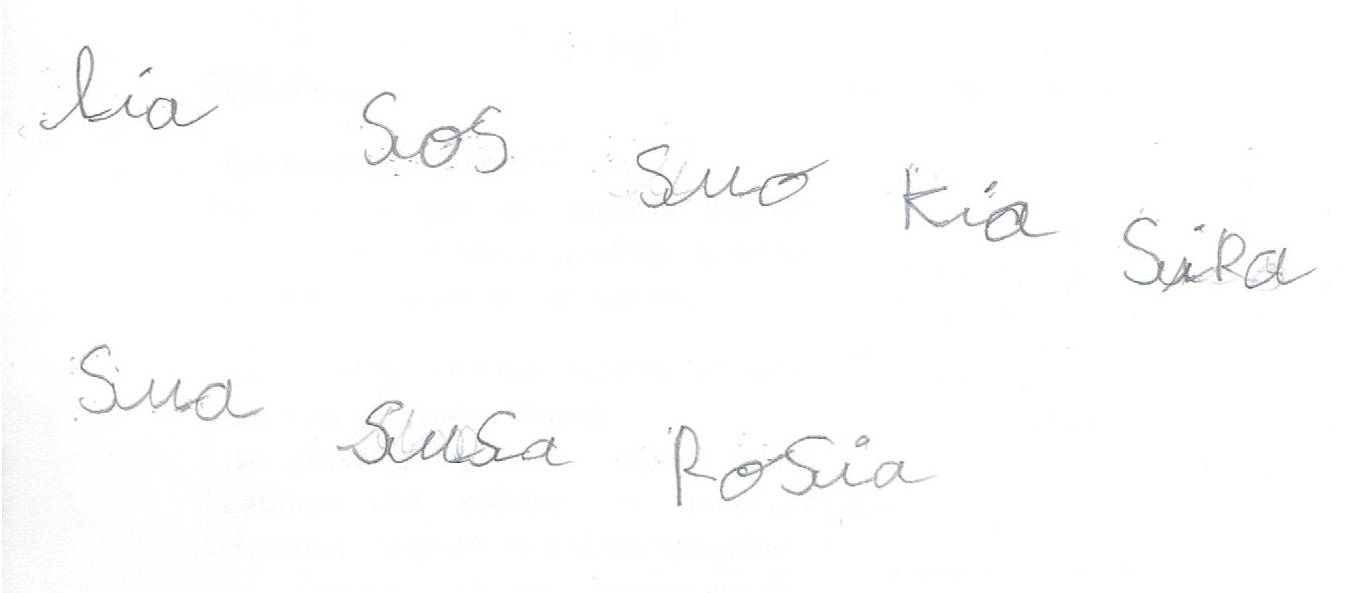 lia sos suo Kia siRa
sua susa Rosia